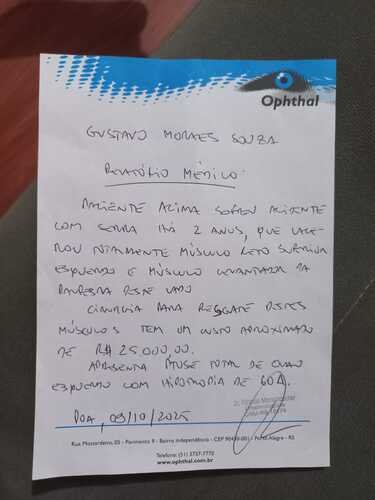 Ophthal
GUSTAVO MORAES SOUZA
RELATÓRIO MÉDICO:
PACIENTE ACIMA SOFREU ACIDENTE
COM SERRA HÁ 2 ANOS, QUE LACE-
ROU TOTALMENTE MÚSCULO RETO SUPERIOR
ESQUERDO E MÚSCULO LEVANTADOR DA
PÁLPEBRA DESTE LADO
CIRURGIA PARA RESGATE DESTES
MÚSCULOS TEM UM CUSTO APROXIMADO
DE R$ 25.000,00.
APRESENTA PTOSE TOTAL DE
ESQUERDO COM HIPOTROPIA DE 60Δ.
POA, 09/10/2025
Rua Mostardeiro, 05 - Pavimento 9 - Bairro Independência - CEP 90430-001 - Porto Alegre - RS
Telefone: (51) 3737-7770
www.ophthal.com.br